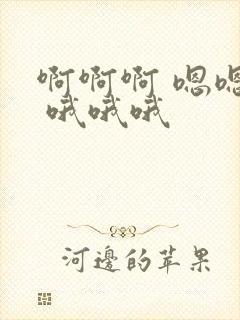 啊啊啊 嗯嗯
哦哦哦
河邊的苹果